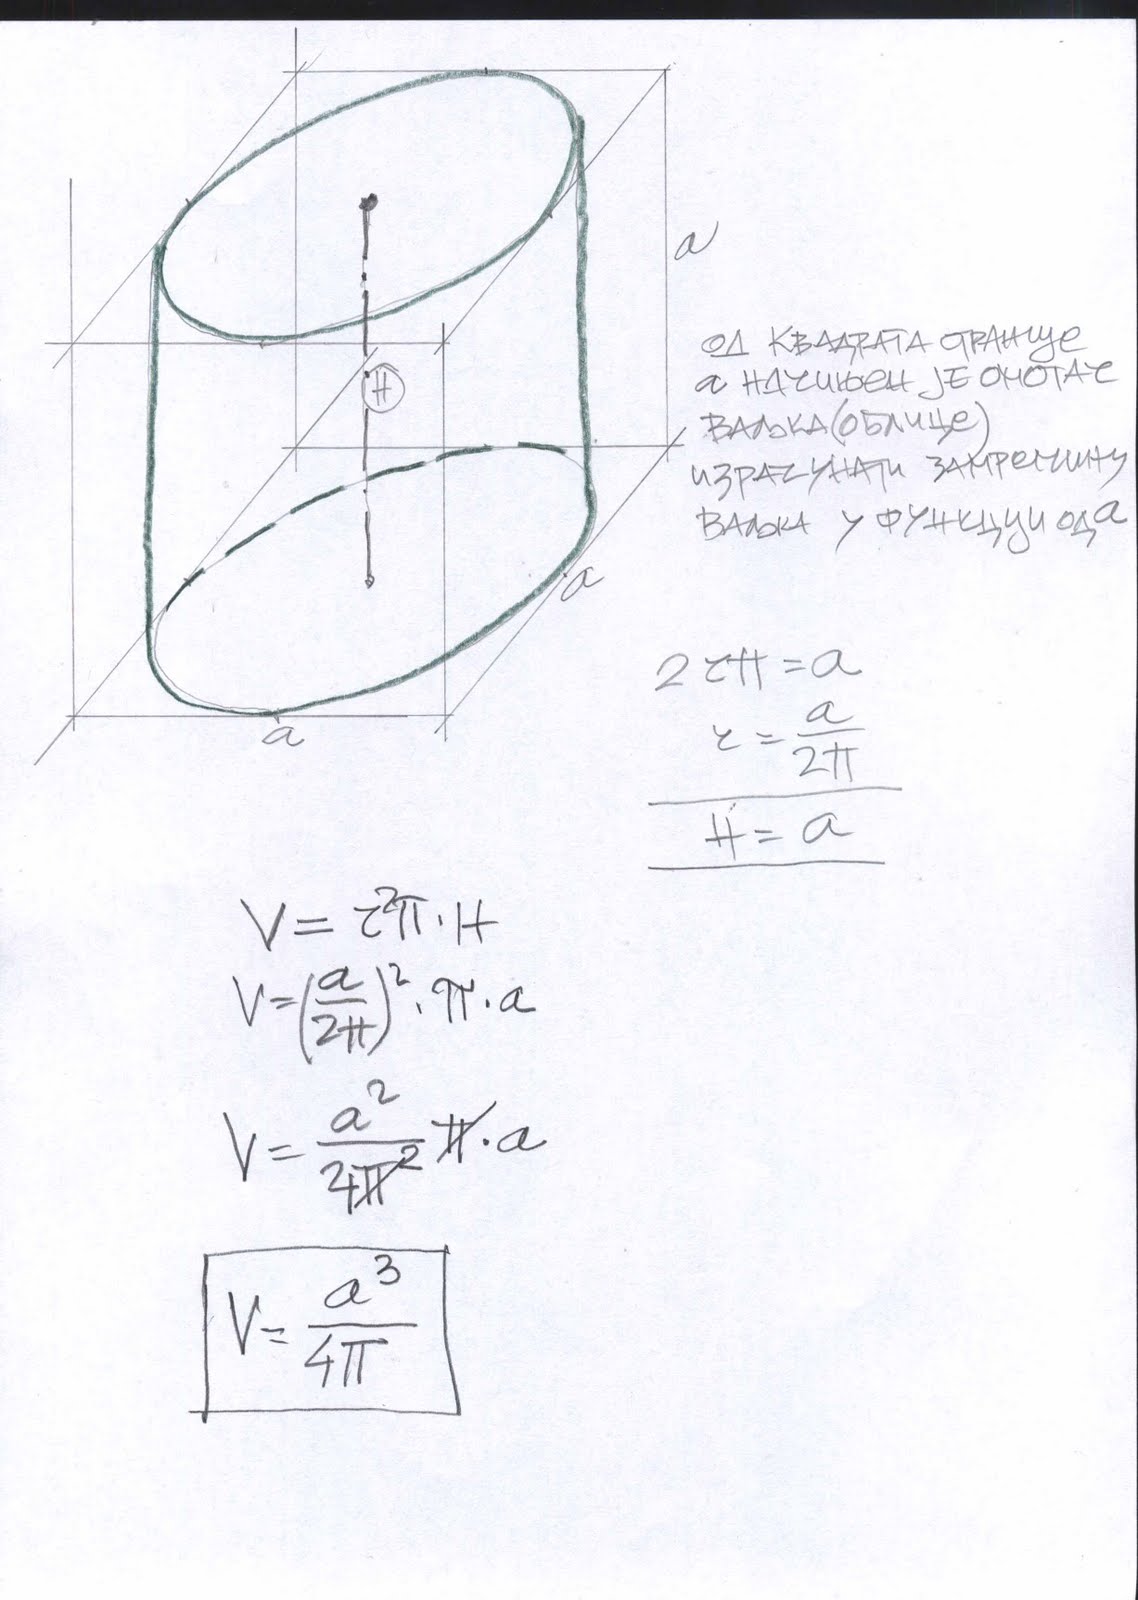 a
ОД КВАДРАТА СТРАНИЦЕ
a НАЧИЊЕН ЈЕ ОМОТАЧ
ВАЉКА (ОБЛИЦЕ)
ИЗРАЧУНАТИ ЗАПРЕМИНУ
ВАЉКА У ФУНКЦИЈИ ОД a
H
a
a
2rπ = a
r = a/2π
H = a
V = r²π · H
V = (a/2π)² · π · a
V = a²/4π² π · a
V = a³/4π